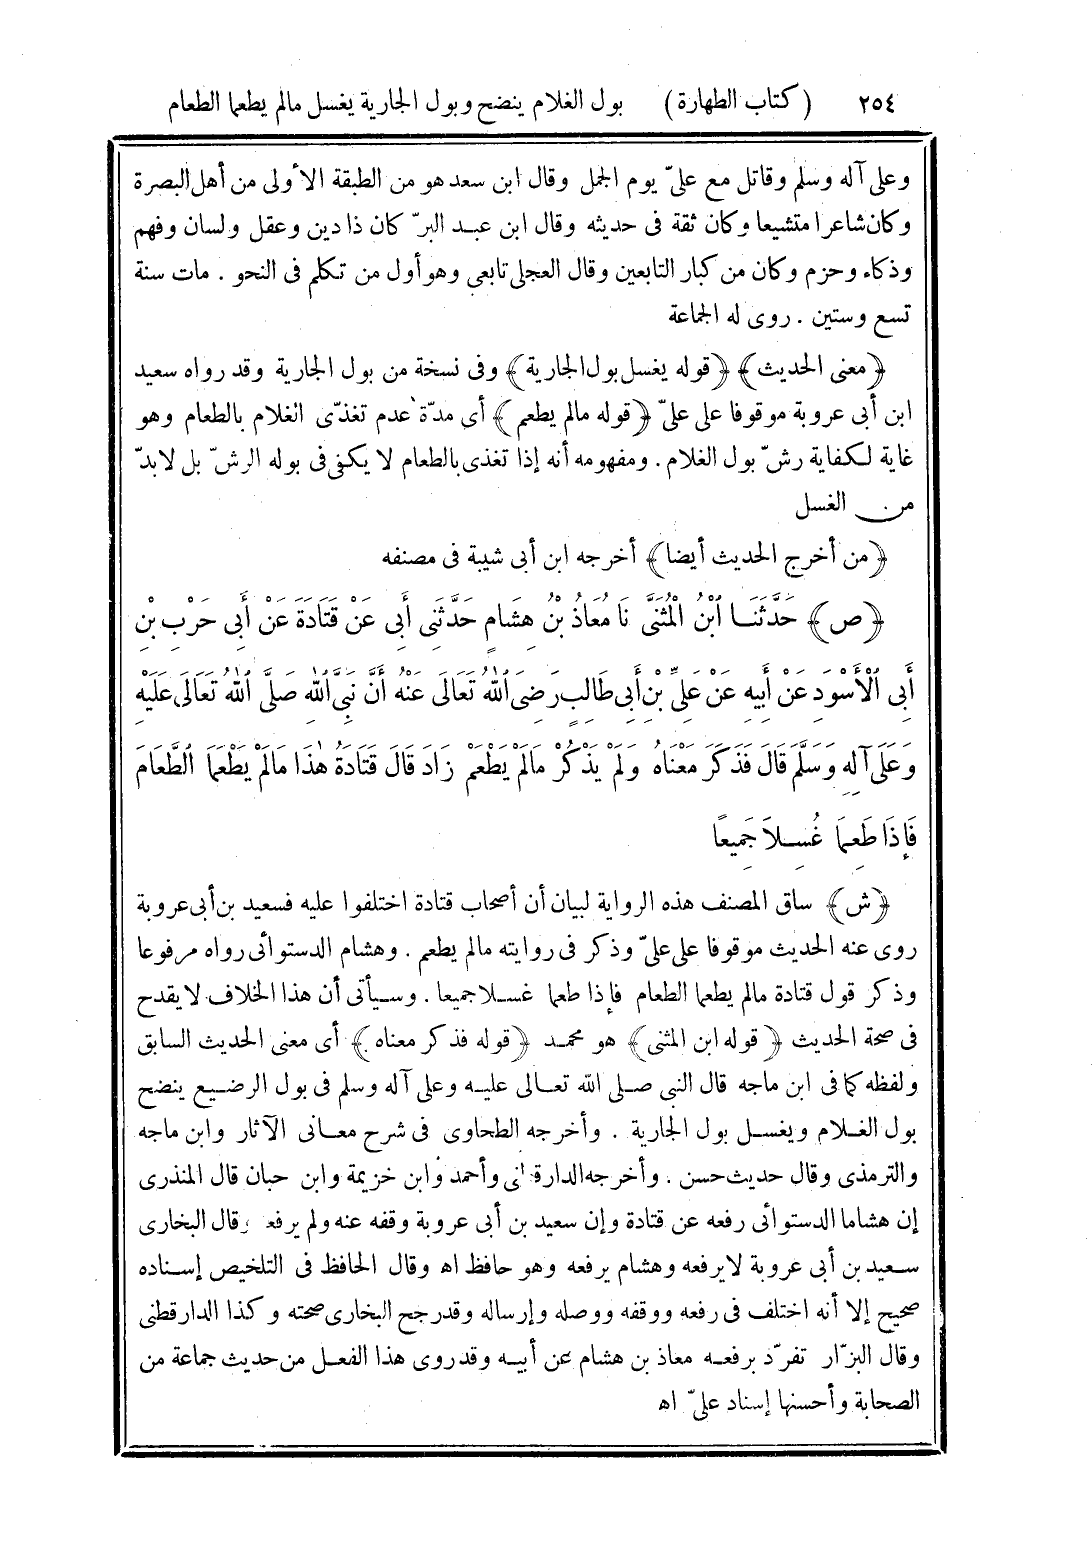 ٢٥٤ (كتاب الطهارة) بول الغلام ينضح وبول الجارية يغسل مالم يطعما الطعام
وعلى آله وسلم وقاتل مع علىّ يوم الجمل وقال ابن سعد هو من الطبقة الأولى من أهل البصرة
وكان شاعرا متشيعا وكان ثقة فى حديثه وقال ابن عبـد البرّ كان ذا دين وعقل ولسان وفهم
وذكاء وحزم وكان من كبار التابعين وقال العجلى تابعى وهو أول من تكلم فى النحو . مات سنة
تسع وستين . روى له الجماعة
﴿معنى الحديث﴾ ﴿قوله يغسل بول الجارية﴾ وفى نسخة من بول الجارية وقد رواه سعيد
ابن أبى عروبة موقوفا على علىّ ﴿قوله مالم يطعم﴾ أى مدّة عدم تغذّى الغلام بالطعام وهو
غاية لكفاية رشّ بول الغلام . ومفهومه أنه إذا تغذى بالطعام لا يكفى فى بوله الرشّ بل لابدّ
من الغسل
﴿من أخرج الحديث أيضا﴾ أخرجه ابن أبى شيبة فى مصنفه
﴿ص﴾ حَدَّثَنَـا ابْنُ الْمُثَنَّى نَا مُعَاذُ بْنُ هِشَامٍ حَدَّثَنِى أَبِى عَنْ قَتَادَةَ عَنْ أَبِى حَرْبِ بْنِ
أَبِى الْأَسْوَدِ عَنْ أَبِيهِ عَنْ عَلِيِّ بْنِ أَبِى طَالِبٍ رَضِىَ اللهُ تَعَالَى عَنْهُ أَنَّ نَبِىَّ اللهِ صَلَّى اللهُ تَعَالَى عَلَيْهِ
وَعَلَى آلِهِ وَسَلَّمَ قَالَ فَذَكَرَ مَعْنَاهُ وَلَمْ يَذْكُرْ مَالَمْ يَطْعَمْ زَادَ قَالَ قَتَادَةُ هٰذَا مَالَمْ يَطْعَمَا الطَّعَامَ
فَإِذَا طَعِمَا غُسِـلَا جَمِيعًا
﴿ش﴾ ساق المصنف هذه الرواية لبيان أن أصحاب قتادة اختلفوا عليه فسعيد بن أبى عروبة
روى عنه الحديث موقوفا على علىّ وذكر فى روايته مالم يطعم . وهشام الدستوائى رواه مرفوعا
وذكر قول قتادة مالم يطعما الطعام فإذا طعما غسـلا جميعا . وسـيأتى أن هذا الخلاف لا يقدح
فى صحة الحديث ﴿قوله ابن المثنى﴾ هو محمـد ﴿قوله فذكر معناه﴾ أى معنى الحديث السابق
ولفظه كما فى ابن ماجه قال النبى صـلى الله تعـالى عليـه وعلى آله وسلم فى بول الرضيع ينضح
بول الغـلام ويغسـل بول الجارية . وأخرجه الطحاوى فى شرح معـانى الآثار وابن ماجه
والترمذى وقال حديث حسن . وأخرجه الدارقطنى وأحمد وابن خزيمة وابن حبان قال المنذرى
إن هشاما الدستوائى رفعه عن قتادة وإن سعيد بن أبى عروبة وقفه عنه ولم يرفعه وقال البخارى
سـعيد بن أبى عروبة لا يرفعه وهشام يرفعه وهو حافظ اه وقال الحافظ فى التلخيص إسـناده
صحيح إلا أنه اختلف فى رفعه ووقفه ووصله وإرساله وقد رجح البخارى صحته وكذا الدارقطنى
وقال البزّار تفرّد برفعـه معاذ بن هشام عن أبيـه وقد روى هذا الفعـل من حديث جماعة من
الصحابة وأحسنها إسناد علىّ اه